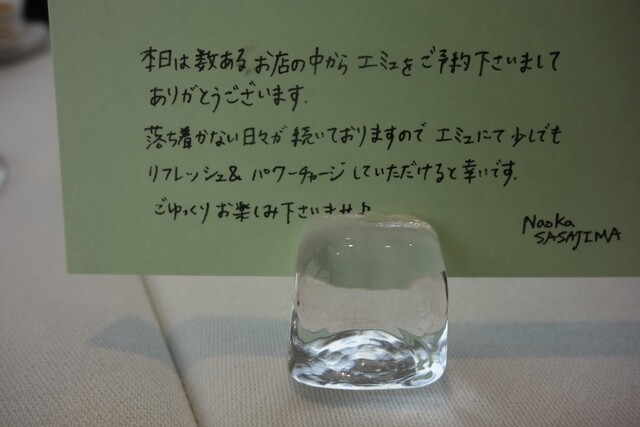 本日は数あるお店の中から エミュをご予約下さいまして
ありがとうございます.
落ち着かない日々が続いておりますので エミュにて少しでも
リフレッシュ& パワーチャージしていただけると幸いです.
ごゆっくりお楽しみ下さいませ♪
Naoka
SASAJIMA